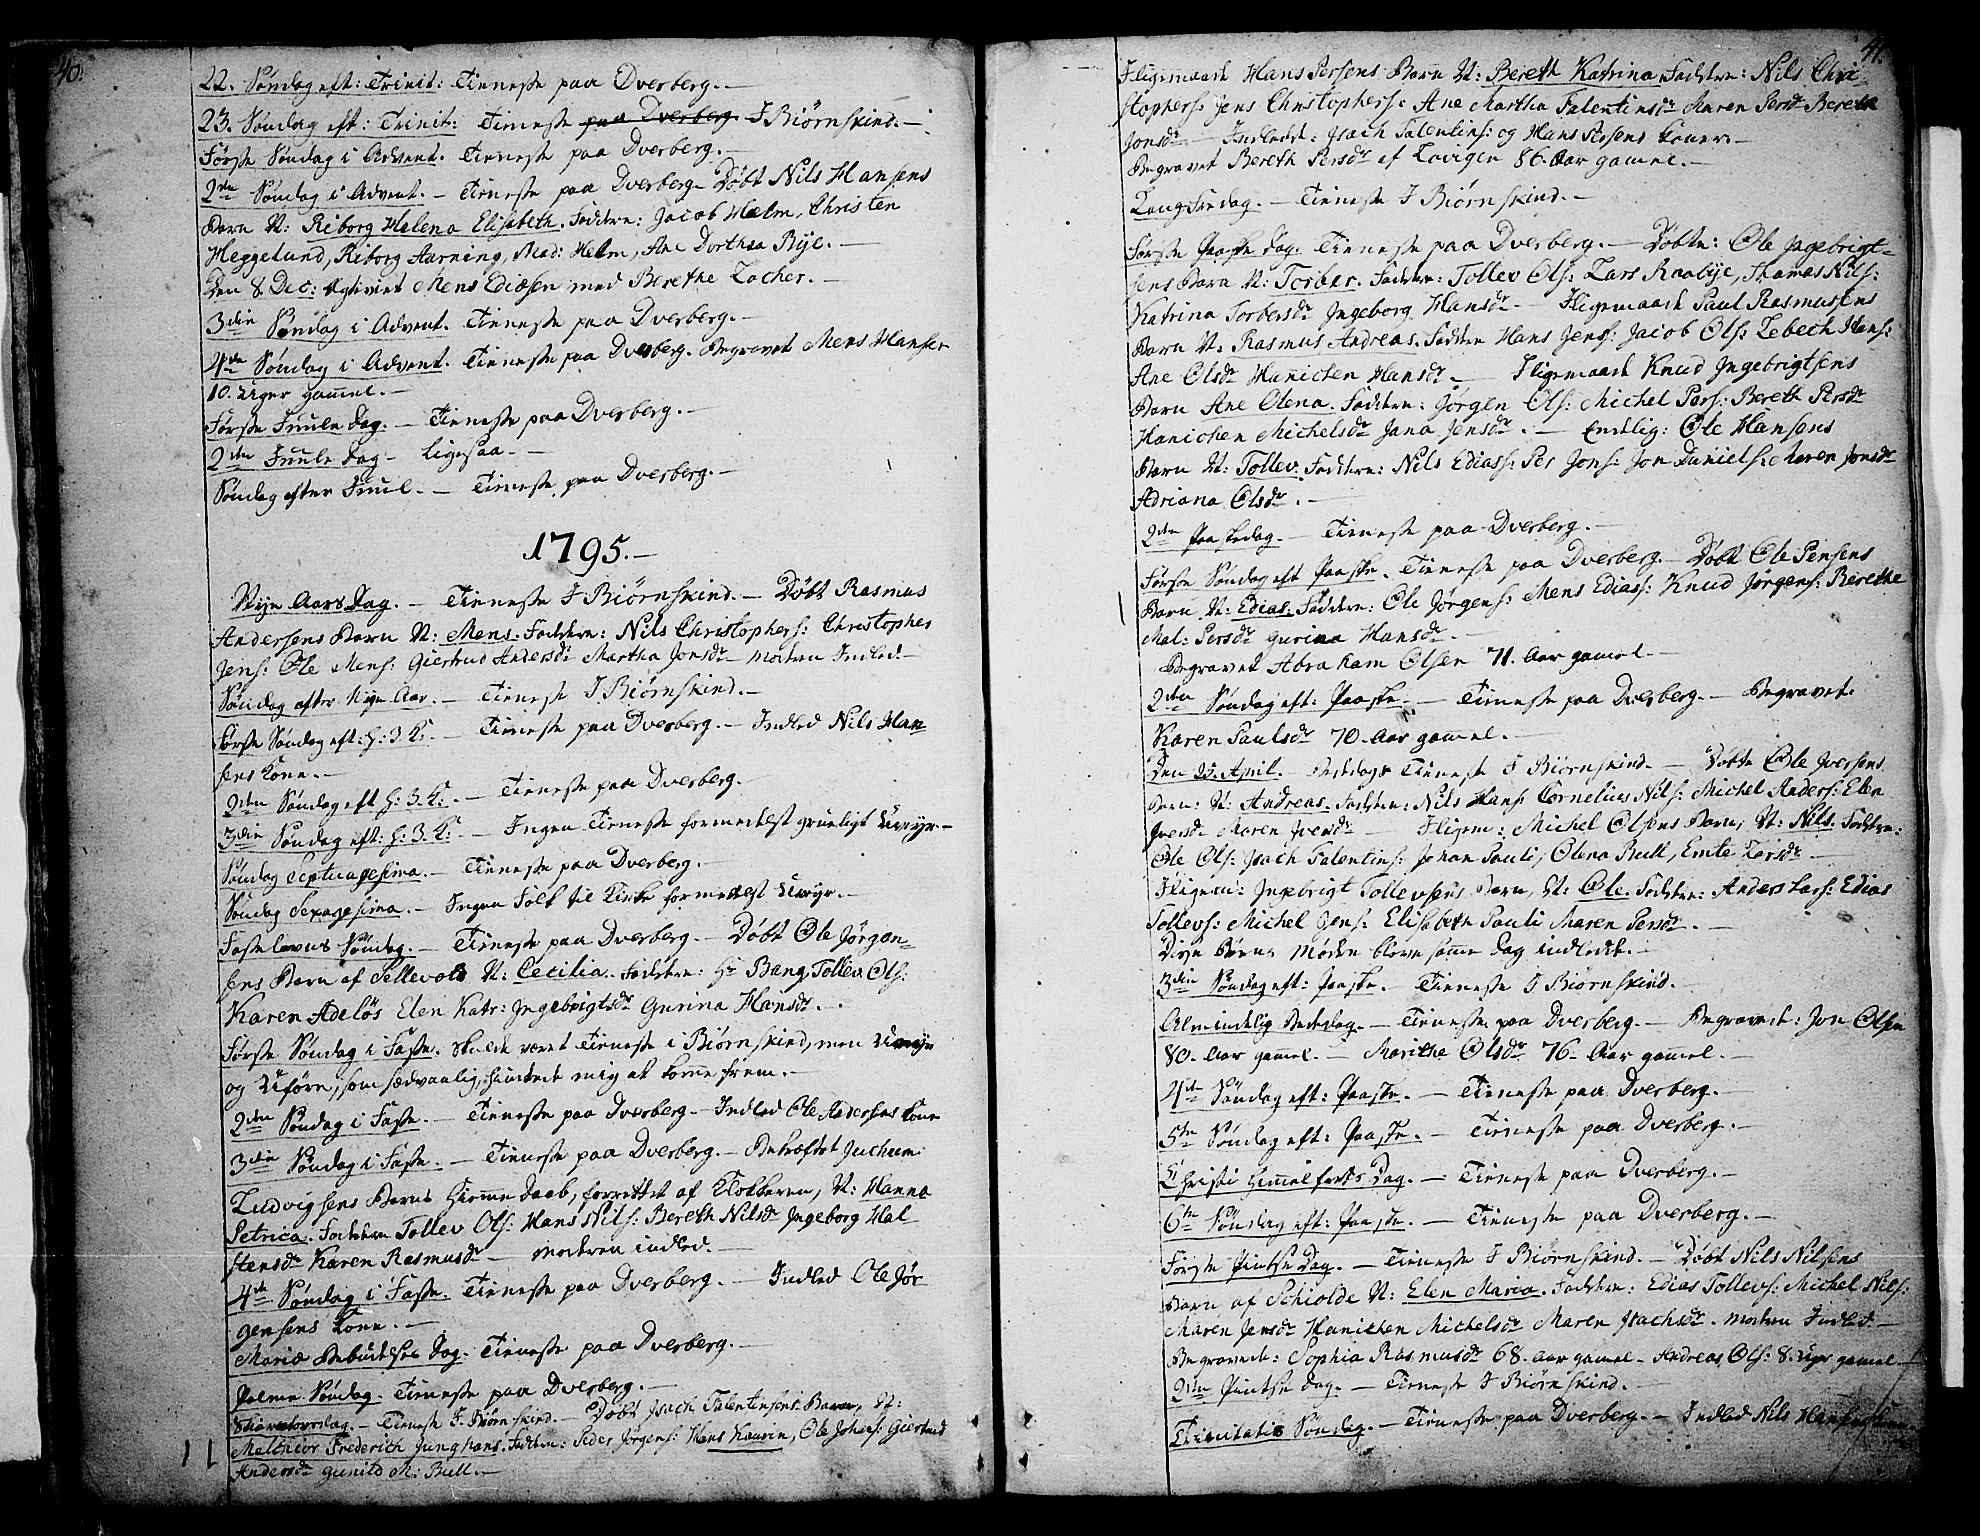 40.
22. Søndag eft: Trinit: Tieneste paa Dverberg. –
23. Søndag eft: Trinit: Tieneste paa Dverberg I Biørnskind. –
Første Søndag i Advent. Tieneste paa Dverberg. –
2den Søndag i Advent. – Tieneste paa Dverberg – Døbt Nils Hansens
Barn N: Riborg Helena Elisabeth. Faddere: Jacob Helm, Christen
Heggelund, Riborg Aarning, Mad: Helm, Ane Dorthea Bye. –
Den 8 Dec: Egtviet Mens Ediasen med Berethe Zacher. –
3die Søndag i Advent. Tieneste paa Dverberg. –
4de Søndag i Advent. Tieneste paa Dverberg. Begravet Mens Hansen
10. Uger gammel. –
Første Juule Dag. – Tieneste paa Dverberg. –
2den Juule Dag – Ligesaa. –
Søndag efter Juul. – Tieneste paa Dverberg. –
1795. –
Nye Aars Dag. – Tieneste I Biørnskind. – Døbt Rasmus
Andersens Barn N: Mens. Faddere: Nils Christophers: Christopher
Jens: Ole Mens: Giertrud Andersdr Martha Jonsdr – Moderen Indled. –
Søndag efter Nye Aar. – Tieneste I Biørnskind. –
Første Søndag eft: H: 3 K: – Tieneste paa Dverberg. – Indled Nils Han
sens Kone. –
2den Søndag eft H: 3. K: – Tieneste paa Dverberg.
3die Søndag eft: H: 3. K: – Ingen Tieneste formedelst grueligt Uveyr. –
Søndag Septuagesima. – Tieneste paa Dverberg. –
Søndag Sexagesima. – Ingen Folk til Kirke formedelst Uveyr. –
Fastelavns Søndag. – Tieneste paa Dverberg. – Døbt Ole Jørgen-
sens Barn af Sellevold N: Cecilia. Faddere: Hr Bang, Tollev Ols:
Karen Adelös Elen Katr: Ingebrigtsdr Gurina Hansdr. –
Første Søndag i Faste. Skulde været Tieneste i Biørnskind, men Uveyr
og Uføre, som sædvanlig, hindrede mig at komme frem. –
2den Søndag i Faste. – Tieneste paa Dverberg – Indled Ole Andersens Kone
3die Søndag i Faste. – Tieneste paa Dverberg. – Bekræftet Juchum
Ludvigsens Barns Hiemme Daab, forrettet af Klokkeren, N: Hanna
Petrica. Faddere Tollev Ols: Hans Nils: Bereth Nilsdr Ingeborg Hal
stensdr Karen Rasmusdr – Moderen indled. –
4de Søndag i Faste. Tieneste paa Dverberg. – Indled Ole Jør
gensens Kone. –
Mariæ Bebudelses Dag. Tieneste paa Dverberg. –
Palme Søndag. Tieneste paa Dverberg. –
Skiertorsdag. – Tieneste I Biørnskind. – Døbt Isach Falentinsens Barn, N:
Melchior Frederich Junghans. Faddere: Peder Jørgens: Hans Kaurin, Ole Johans: Giertrud
Andersdr Gunild M: Bull. –
41.
Iligemaade Hans Persens Barn N: Bereth Katrina Faddere: Nils Chri-
stophers: Jens Christophers: Ane Martha Falentinsdr Maren Persdr Bereth
Jonsdr – Indledt: Isach Falentins: og Hans Persens Koner. –
Begravet Bereth Persdr af Lovigen 86. Aar gamel. –
Langfredag. – Tieneste I Biørnskind. –
Første Paaske Dag. Tieneste paa Dverberg. – Døbte: Ole Ingebrigt-
sens Barn N: Torber. Faddere: Tollev Ols: Lars Raabye, Thomas Nils:
Katrina Torbersdr Ingeborg Hansdr – Iligemaade Paul Rasmusens
Barn N: Rasmus Andreas. Faddere Hans Jens: Jacob Ols: Zebech Hans:
Ane Olsdr Hanichen Hansdr – Iligemaade Knud Ingebrigtsens
Barn Ane Olena. Faddere: Jørgen Ols: Michel Pers: Bereth Persdr
Hanichen Michelsdr Jana Jensdr. – Endelig: Ole Hansens
Barn N: Tollev. Faddere: Nils Edias: Per Jons: Jon Daniels: Maren Jonsdr
Adriana Olsdr. –
2den Paaskedag. – Tieneste paa Dverberg. –
Første Søndag eft Paaske. Tieneste paa Dverberg. – Døbt Ole Pensens
Barn N: Edias. Faddere: Ole Jørgens: Mens Edias: Knud Jørgens: Berethe
Mal: Persdr Gurina Hansdr. –
Begravet Abraham Olsen 71. Aar gamel. –
2den Søndag eft: Paaske. – Tieneste paa Dverberg. – Begravet
Karen Paulsdr 70. Aar gamel. –
Den 23. April. – Tieneste I Biørnskind. – Døbte Ole Iversens
Barn: N: Andreas. Faddere: Nils Hans: Cornelius Nils: Michel Anders: Elen
Iversdr Maren Iversdr – Iligem: Michel Olsens Barn, N: Nils. Faddere:
Ole Ols: Isach Falentins: Johan Pauli, Olena Bull, Emte Larsdr –
Iligem: Ingebrigt Tollevsens Barn, N: Ole. Faddere: Anders Lars: Edias
Tollevs: Michel Jens: Elisabeth Pauli Maren Persdr. –
Disse Børns Mødre bleve samme Dag indledt. –
3die Søndag eft: Paaske. – Tieneste I Biørnskind. –
Almindelig Bededag. – Tieneste paa Dverberg. – Begravede: Jon Olsen
80. Aar gammel. – Marithe Olsdr 76. Aar gammel. –
4de Søndag eft: Paaske. – Tieneste paa Dverberg. –
5te Søndag eft: Paaske. – Tieneste paa Dverberg. –
Christi Himmelfarts Dag. – Tieneste paa Dverberg. –
6te Søndag eft: Paaske. – Tieneste paa Dverberg. –
Første Pintse Dag. – Tieneste I Biørnskind. – Døbt Nils Nilsens
Barn af Schiolde N: Elen Maria. Faddere: Edias Tollevs: Michel Nils:
Maren Jensdr Hanichen Michelsdr Maren Isachsdr. Moderen Indled. –
Begravede: Sophia Rasmusdr 68. Aar gamel – Andreas Ols: 8. Uger gamel –
2den Pintse Dag. – Tieneste I Biørnskind. –
Trinitatis Søndag. – Tieneste paa Dverberg. – Indled Nils Hansens